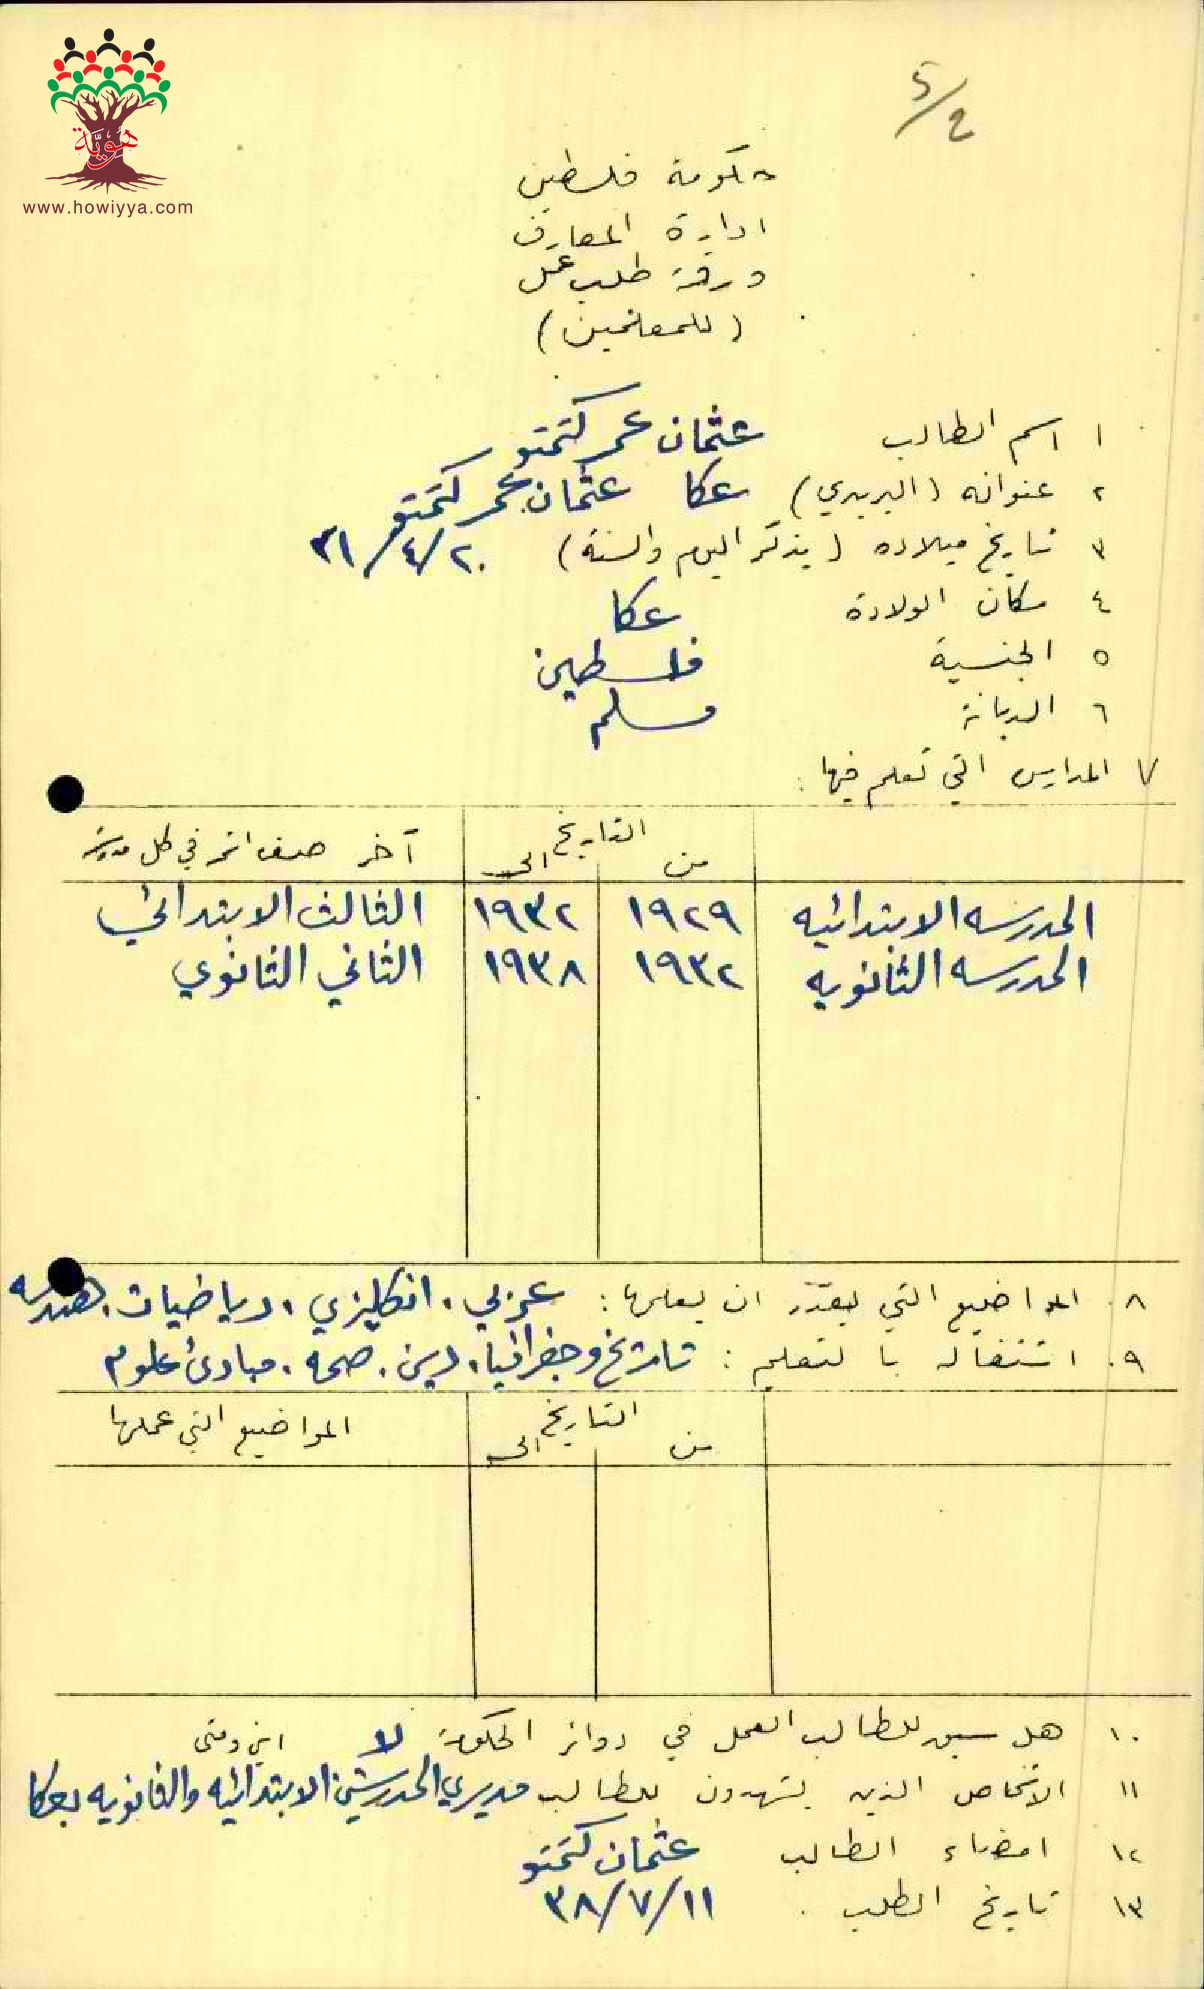 هوية
www.howiyya.com
٥/٤
حكومة فلسطين
ادارة المعارف
ورقة طلب عمل
(للمعلمين)
١ اسم الطالب عثمان عمر كتمتو
٢ عنوانه (البريدي) عكا عثمان عمر كتمتو
٣ تاريخ ميلاده (يذكر اليوم والسنة) ٢٠/٤/٢١
٤ مكان الولادة عكا
٥ الجنسية فلسطين
٦ الديانة مسلم
٧ المدارس التي تعلم فيها :
التاريخ
من الى آخر صف اتمه في كل مدرسة
المدرسه الابتدائيه ١٩٢٩ ١٩٣٢ الثالث الابتدائي
المدرسه الثانويه ١٩٣٢ ١٩٣٨ الثاني الثانوي
٨. المواضيع التي يقدر ان يعلمها : عربي، انكليزي، رياضيات، هندسه
٩. اشتغاله بالتعليم : تاريخ وجغرافيا، دين، صحه، مبادئ علوم
التاريخ
من الى المواضيع التي علمها
١٠. هل سبق للطالب العمل في دوائر الحكومة لا اين ومتى
١١ الاشخاص الذين يشهدون للطالب مديري المدرستين الابتدائيه والثانويه بعكا
١٢ امضاء الطالب عثمان كتمتو
١٣ تاريخ الطلب . ١١/٧/٣٨